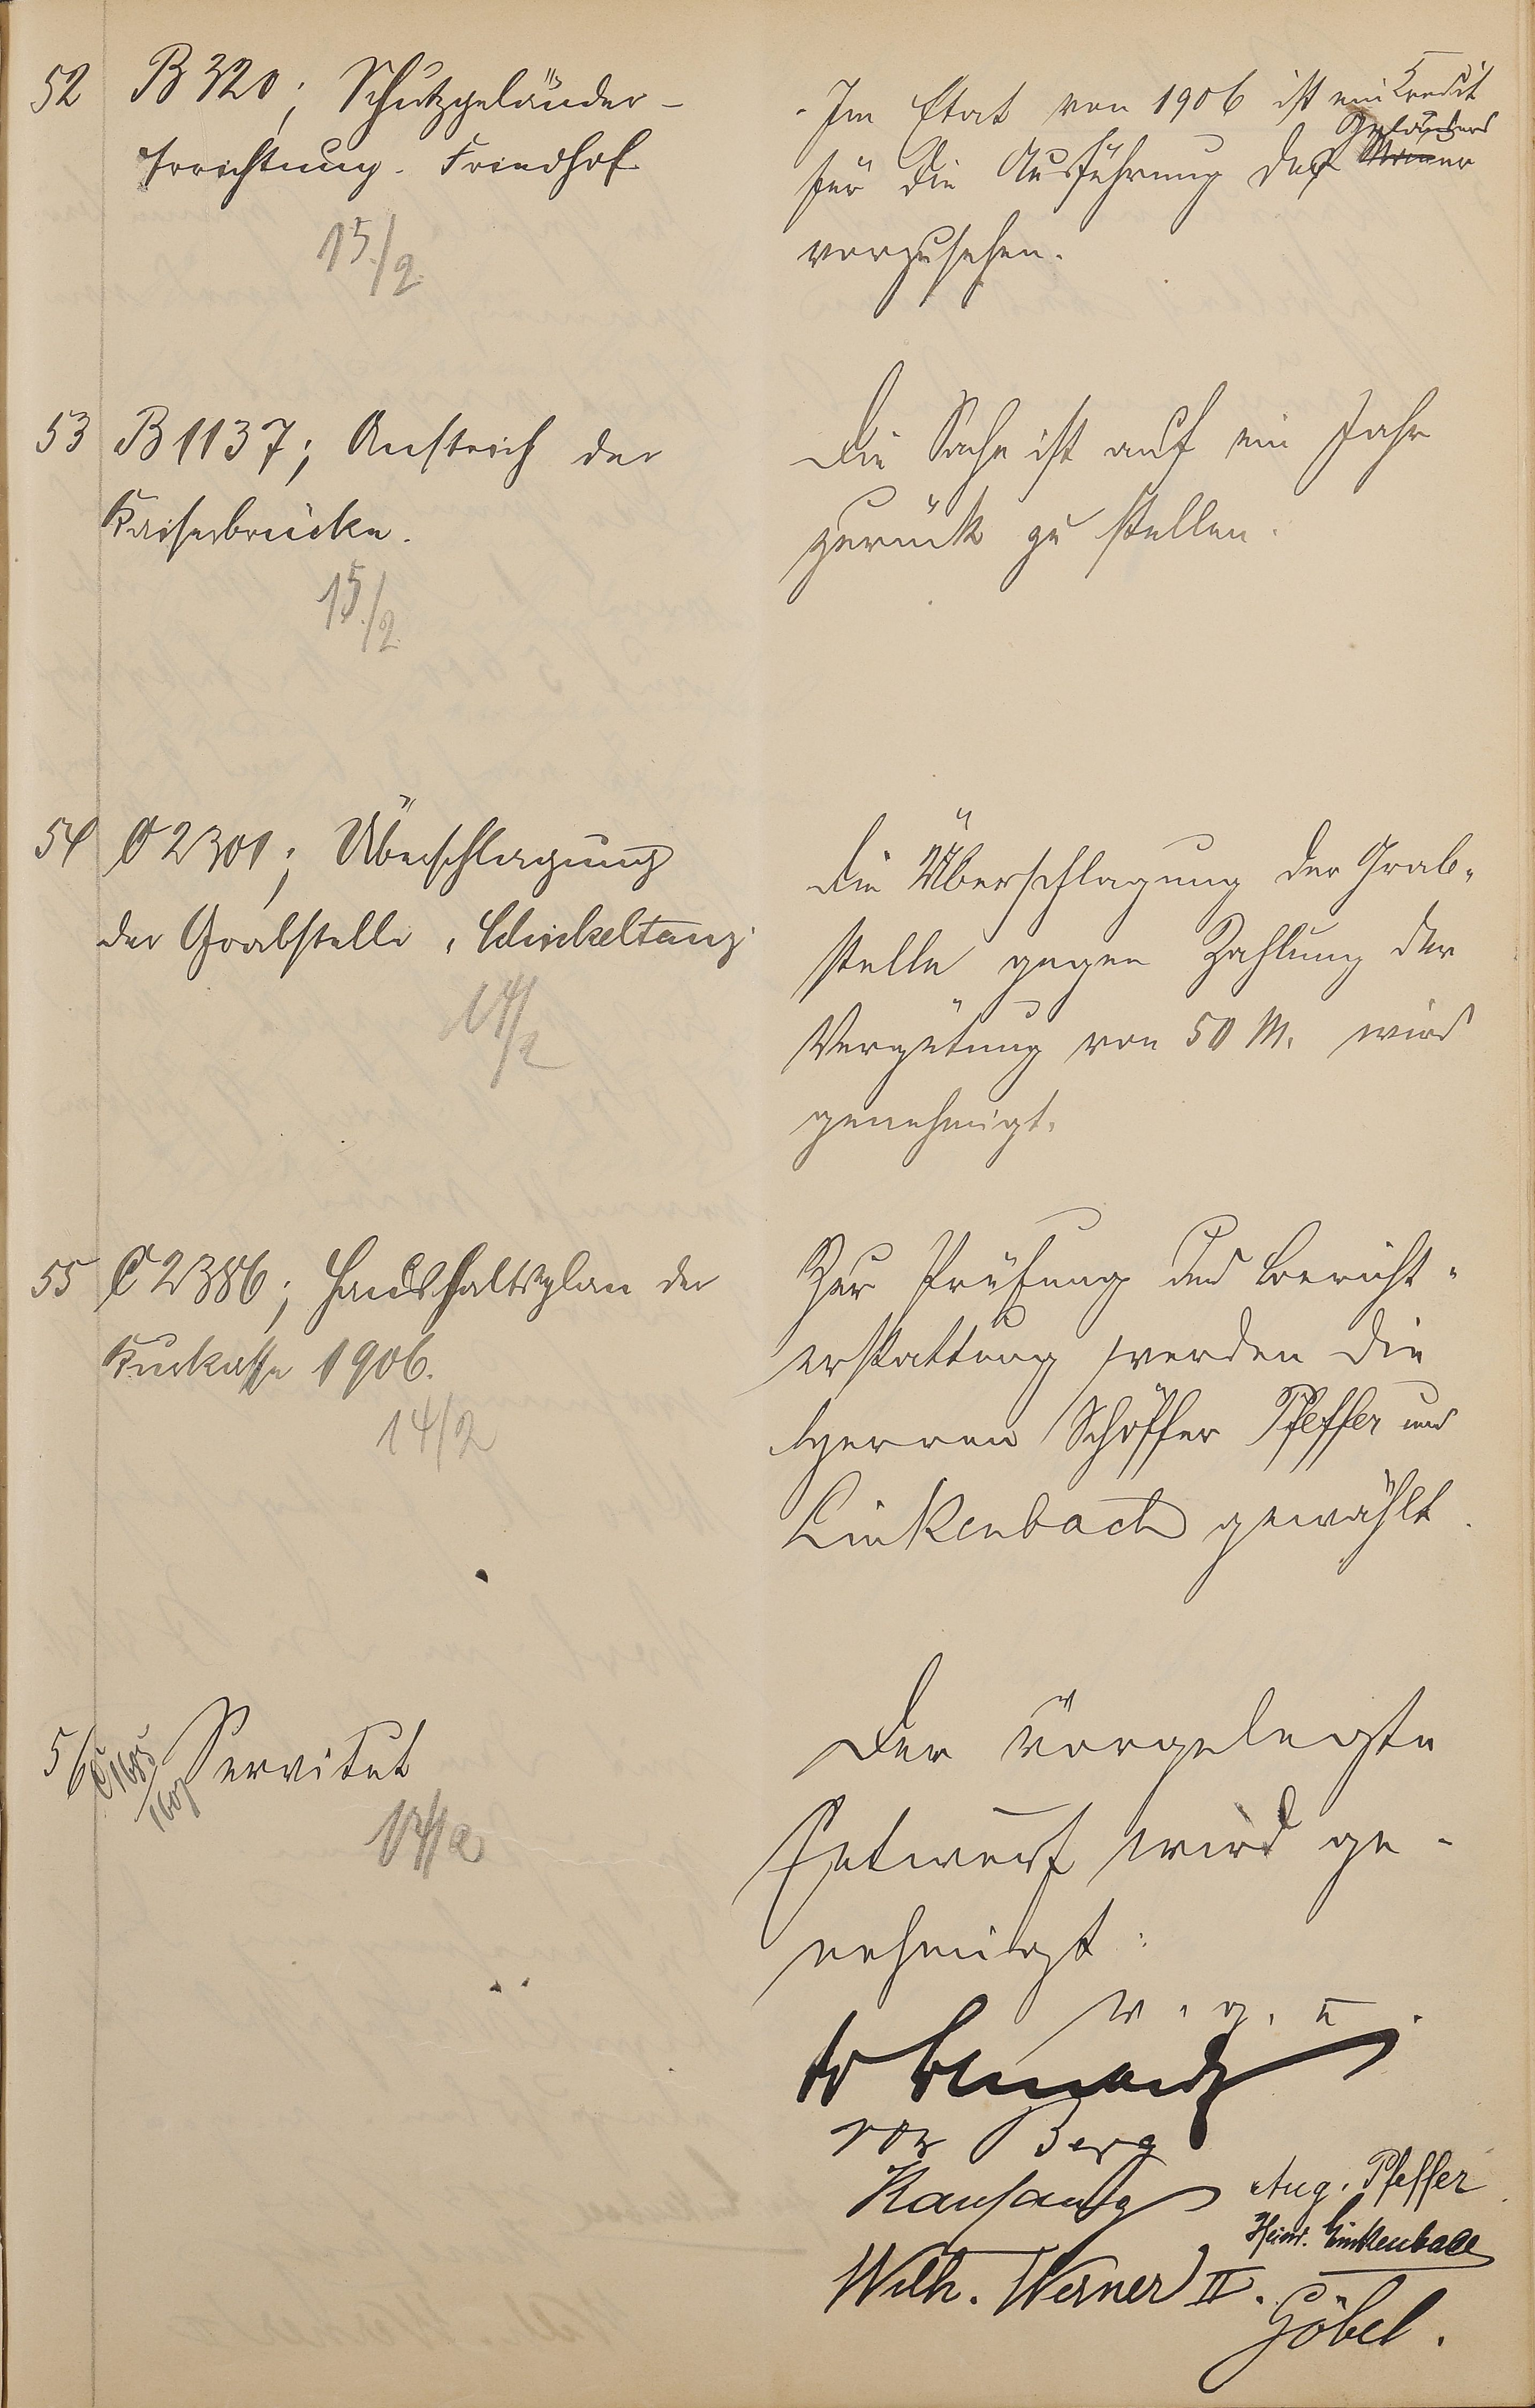 52 B 320; Schutzgeländer-
Errichtung. Friedhof
15./2.
Im Etat von 1906 ist ein Kredit
für die Ausführung des Geländers
vorzusehen.
53 B 1137; Anstrich der
Kaiserbrücke.
15./2.
Die Sache ist auf ein Jahr
zurück zu stellen.
54 C 2301; Überschlagung
der Grabstelle
14/2
Die Überschlagung der Grab-
stelle gegen Zahlung der
Vergütung von 50 M. wird
genehmigt.
55 C 2386; Haushaltsplan der
Kurkasse 1906.
14/2
Zur Prüfung und Bericht-
erstattung werden die
Herren Schöffer Pfeffer und
Linkenbach gewählt.
56 C 1605
1607
Servitut
14/2
Der vorgelegte
Entwurf wird ge-
nehmigt:
v. g. u.
von Berg
Aug. Pfeffer
Heinr. Linkenbach
Wilh. Werner II.
Göbel.